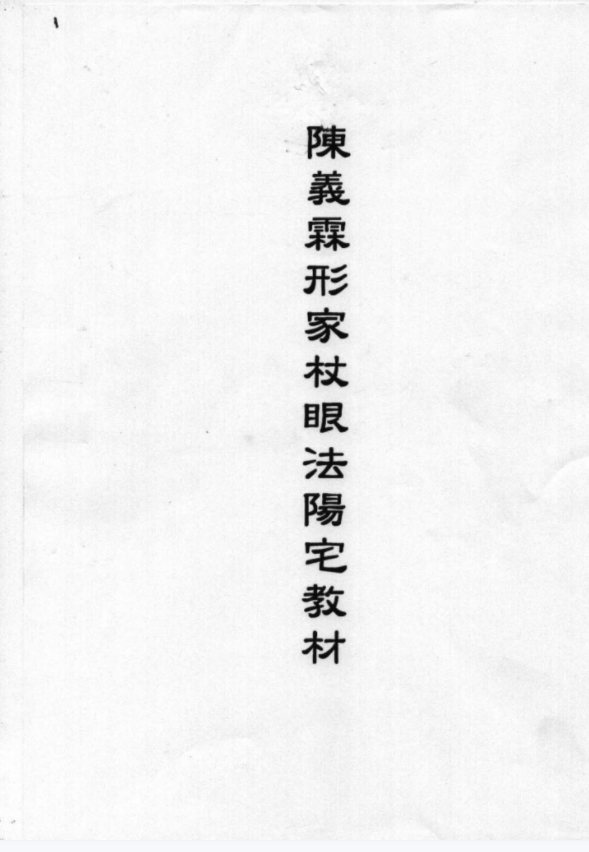 陳義霖形家杖眼法陽宅教材